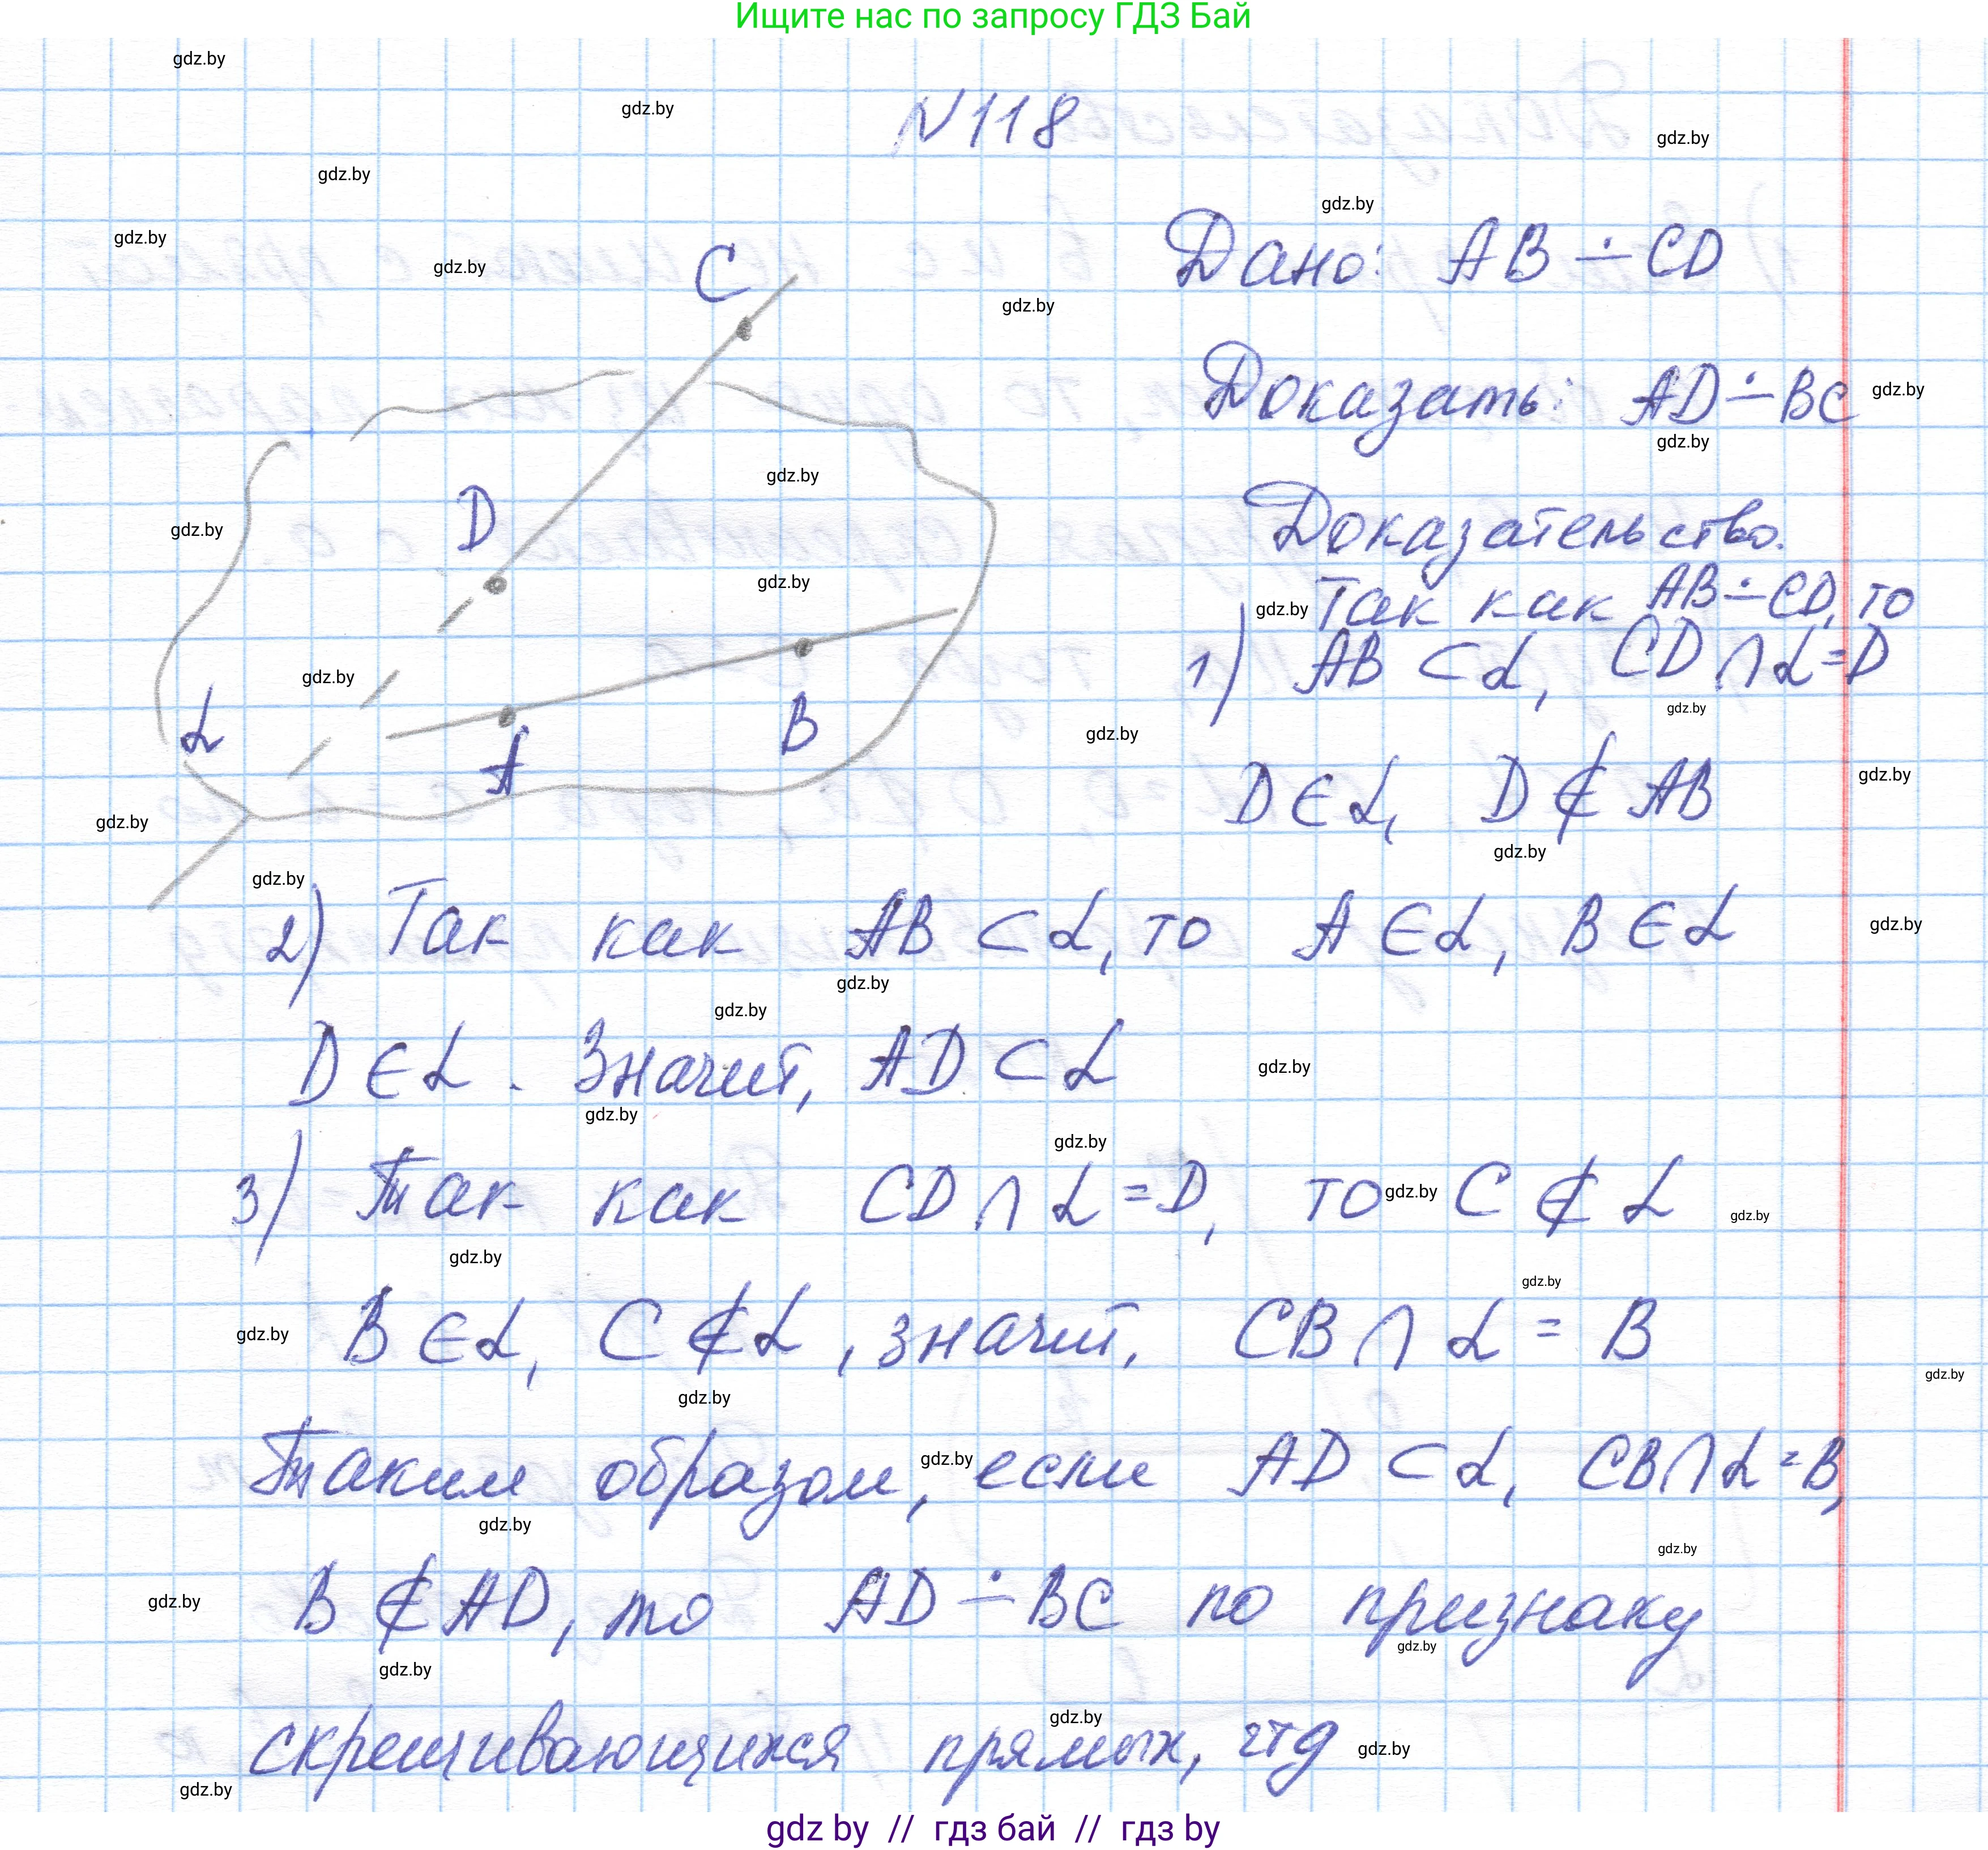 Ищите нас по запросу ГДЗ Бай
N118
Дано: AB ∸ CD
Доказать: AD ∸ BC
Доказательство.
Так как AB ∸ CD, то
1) AB ⊂ α, CD ∩ α = D
D ∈ α, D ∉ AB
C
D
α
A
B
2) Так как AB ⊂ α, то A ∈ α, B ∈ α
D ∈ α. Значит, AD ⊂ α
3) Так как CD ∩ α = D, то C ∉ α
B ∈ α, C ∉ α, значит, CB ∩ α = B
Таким образом, если AD ⊂ α, CB ∩ α = B,
B ∉ AD, то AD ∸ BC по признаку
скрещивающихся прямых, чтд
gdz by // гдз бай // гдз by
gdz.by